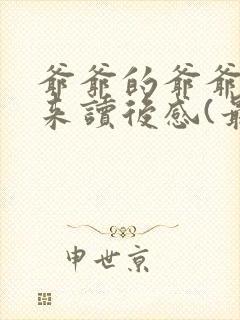 爺爺的爺爺
来讀後感(最
申世京